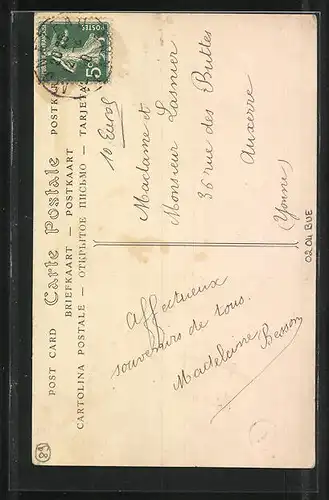 POST CARD
Carte Postale
POSTKA
BRIEFKAART — POSTKAART
CARTOLINA POSTALE — ОТКРЫТОЕ ПИСЬМО — TARJETA
POSTES
5c
10 Euros
Madame et
Monsieur Lasnier
36 rue des Buttes
Auxerre
(Yonne)
Affectueux
souvenirs de tous.
Madeleine Besson
0204 BUE
89